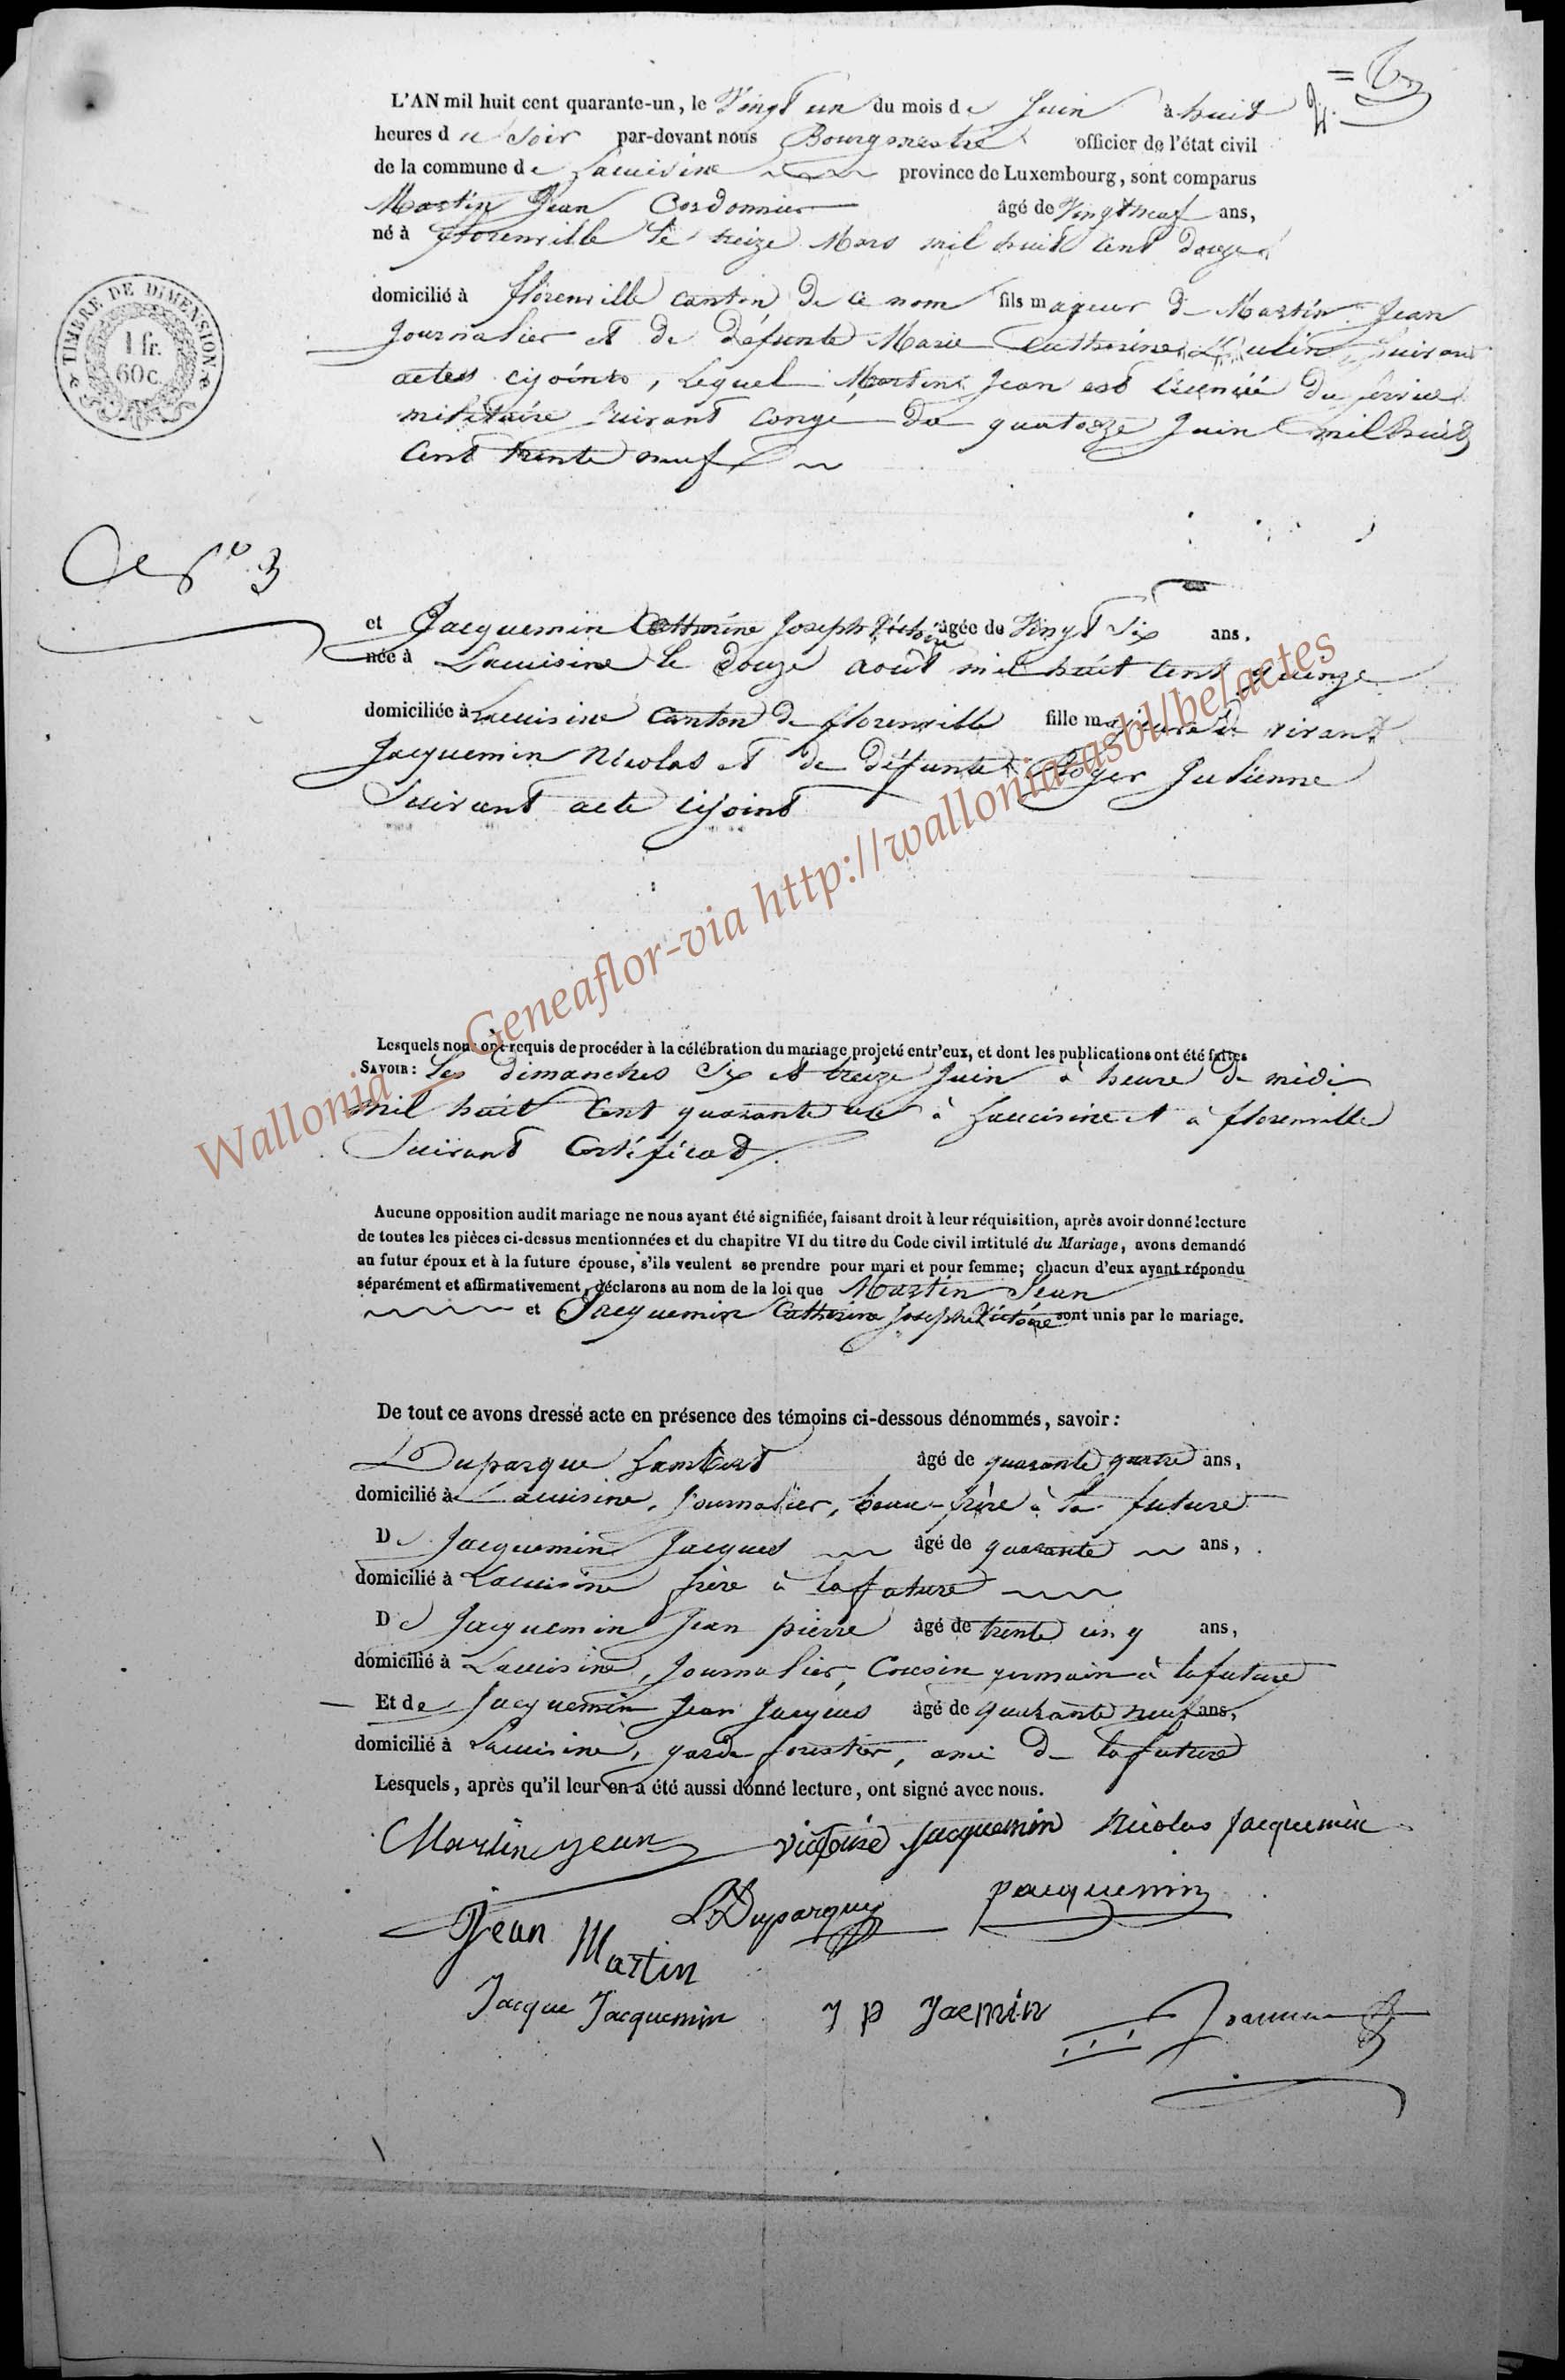 L'AN mil huit cent quarante-un, le Vingt un du mois de Juin à huit
heures du Soir par-devant nous Bourgmestre officier de l'état civil
de la commune de Lacuisine province de Luxembourg, sont comparus
Martin Jean Cordonnier âgé de Vingt neuf ans,
né à florenville le treize Mars mil huit cent douze
TIMBRE DE DIMENSION
1 fr.
60 c.
domicilié à florenville canton de ce nom fils mageur de Martin Jean
Journalier et de défunte Marie Catherine suivant
actes cijoints, Lequel Martin Jean est licencié du service
militaire suivant congé du quatorze Juin mil huit
Cent trente neuf
3
et Jacquemin Catherine Joseph Victoire âgée de Vingt Six ans,
née à Lacuisine le douze août mil huit cent quinze
domiciliée à Lacuisine Canton de florenville fille majeure de vivant
Jacquemin Nicolas et de défunte Poger Julienne
Suivant acte cijoint
Lesquels nous ont requis de procéder à la célébration du mariage projeté entr'eux, et dont les publications ont été faites
SAVOIR : Les dimanches Six et treize Juin à heure de midi
mil huit Cent quarante un à Lacuisine et à florenville
Suivant Certificat
Aucune opposition audit mariage ne nous ayant été signifiée, faisant droit à leur réquisition, après avoir donné lecture
de toutes les pièces ci-dessus mentionnées et du chapitre VI du titre du Code civil intitulé du Mariage, avons demandé
au futur époux et à la future épouse, s'ils veulent se prendre pour mari et pour femme; chacun d'eux ayant répondu
séparément et affirmativement, déclarons au nom de la loi que Martin Jean
et Jacquemin Catherine Joseph Victoire sont unis par le mariage.
De tout ce avons dressé acte en présence des témoins ci-dessous dénommés, savoir :
Duparque Lambert âgé de quarante quatre ans,
domicilié à Lacuisine, Journalier, beau-frère à la future
De Jacquemin Jacques âgé de quarante ans,
domicilié à Lacuisine frère à la future
De Jacquemin Jean pierre âgé de trente cinq ans,
domicilié à Lacuisine, Journalier, Cousin germain à la future
Et de Jacquemin Jean Jacques âgé de quarante neuf ans,
domicilié à Lacuisine, garde forestier, ami de la future
Lesquels, après qu'il leur en a été aussi donné lecture, ont signé avec nous.
Martin jean victoire jacquemin Nicolas jacquemin
Jean Martin L Duparque jacquemin
Jacque Jacquemin J P Jacmin
Wallonia - Geneaflor-via http://wallonia-asbl/be/actes